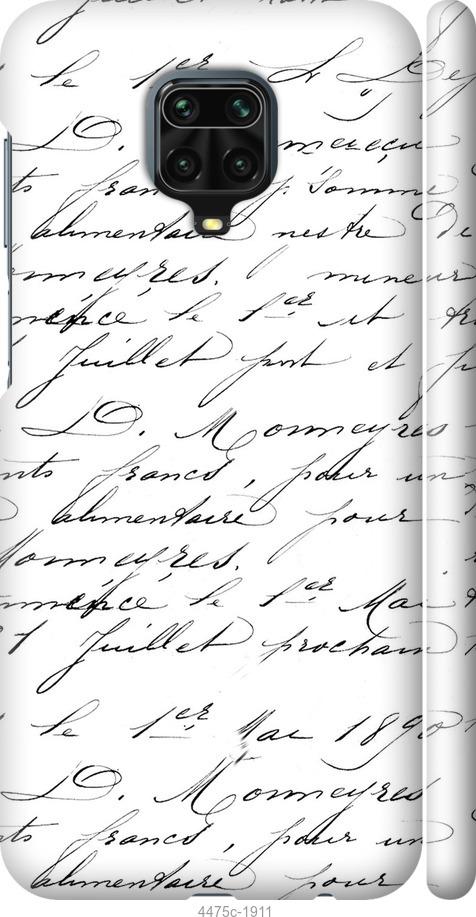 le 1er
D.
ts fran Somme
alimentaire nestre de
nmeyres. mineur
mence le 1er et
Juillet port et
D. Monneyres
nts francs, pour un
alimentaire pour
Monneyres.
mmence le 1er Mai
Juillet prochain
le 1er Mai 1890
D. Monneyres
ts francs, pour un
alimentaire pour
4475c-1911